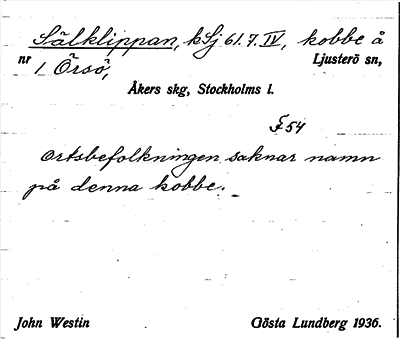 Sälklippan, kLj 61.7.IV, kobbe å
nr 1 Örsö, Ljusterö sn,
Åkers skg, Stockholms l.
§54
Ortsbefolkningen saknar namn
på denna kobbe.
John Westin Gösta Lundberg 1936.